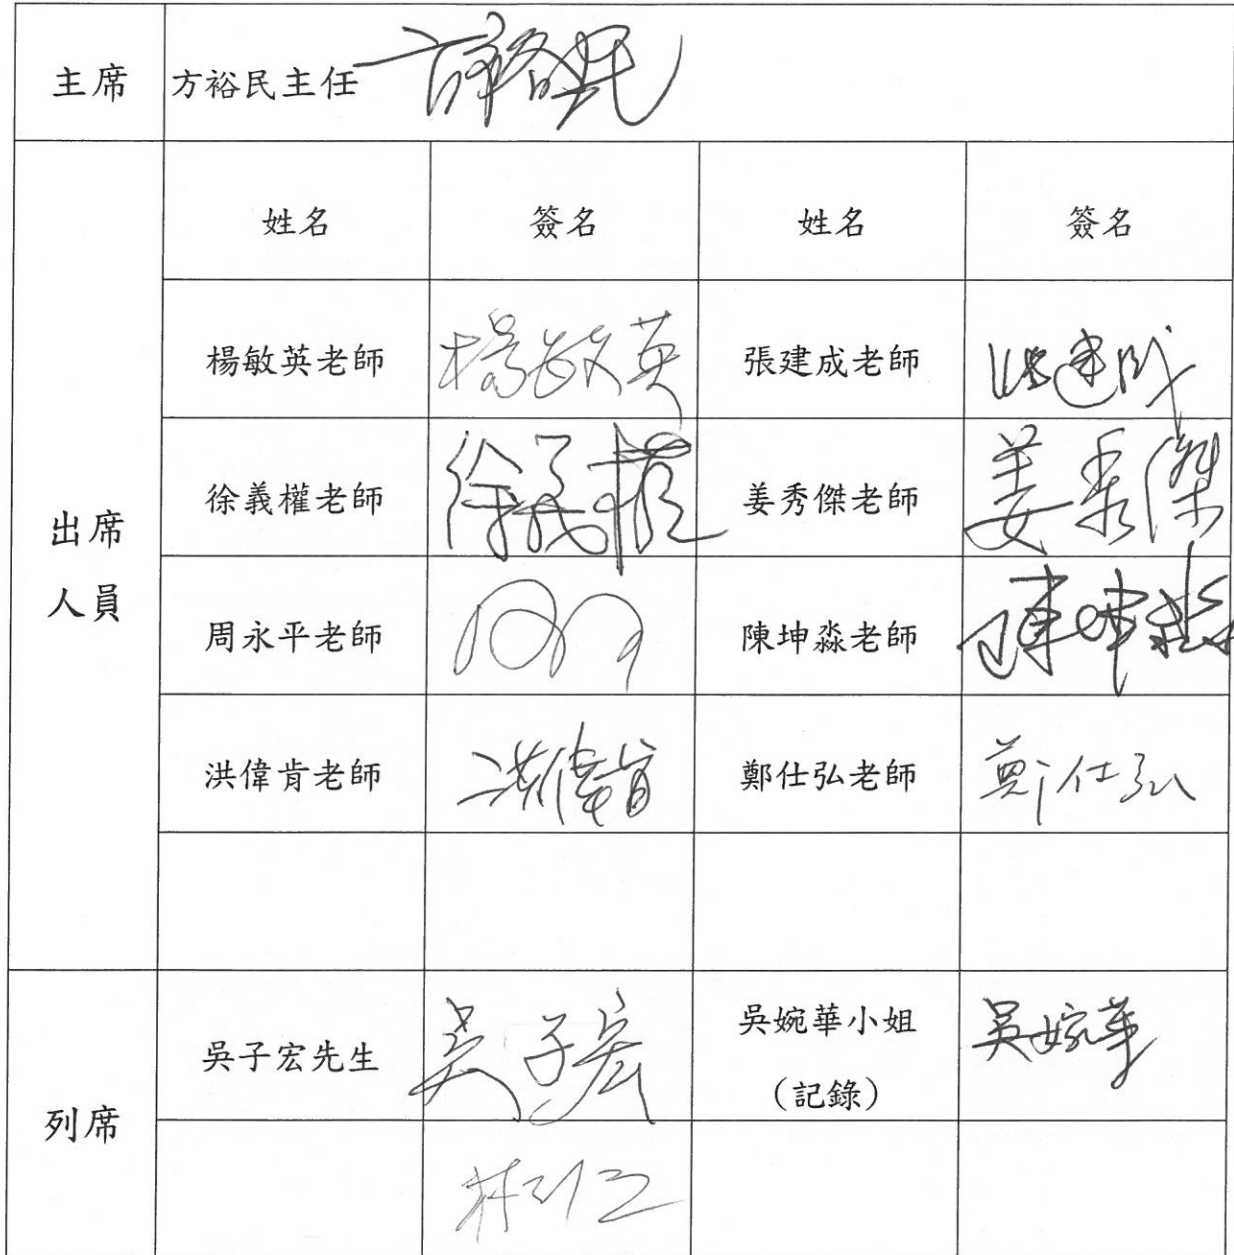 主席 方裕民主任 方裕民
姓名 簽名 姓名 簽名
楊敏英老師 楊敏英 張建成老師 張建成
徐義權老師 徐義權 姜秀傑老師 姜秀傑
周永平老師 陳坤淼老師 陳坤淼
出席
人員
洪偉肯老師 洪偉肯 鄭仕弘老師 鄭仕弘
列席
吳子宏先生 吳子宏 吳婉華小姐 吳婉華
(記錄)